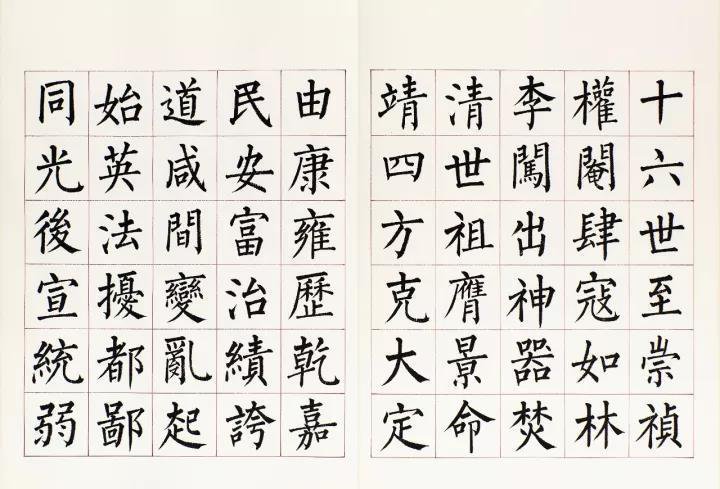 十六世至崇禎
權閹肆寇如林
李闖出神器焚
清世祖膺景命
靖四方克大定
由康雍歷乾嘉
民安富治績誇
道咸間變亂起
始英法擾都鄙
同光後宣統弱